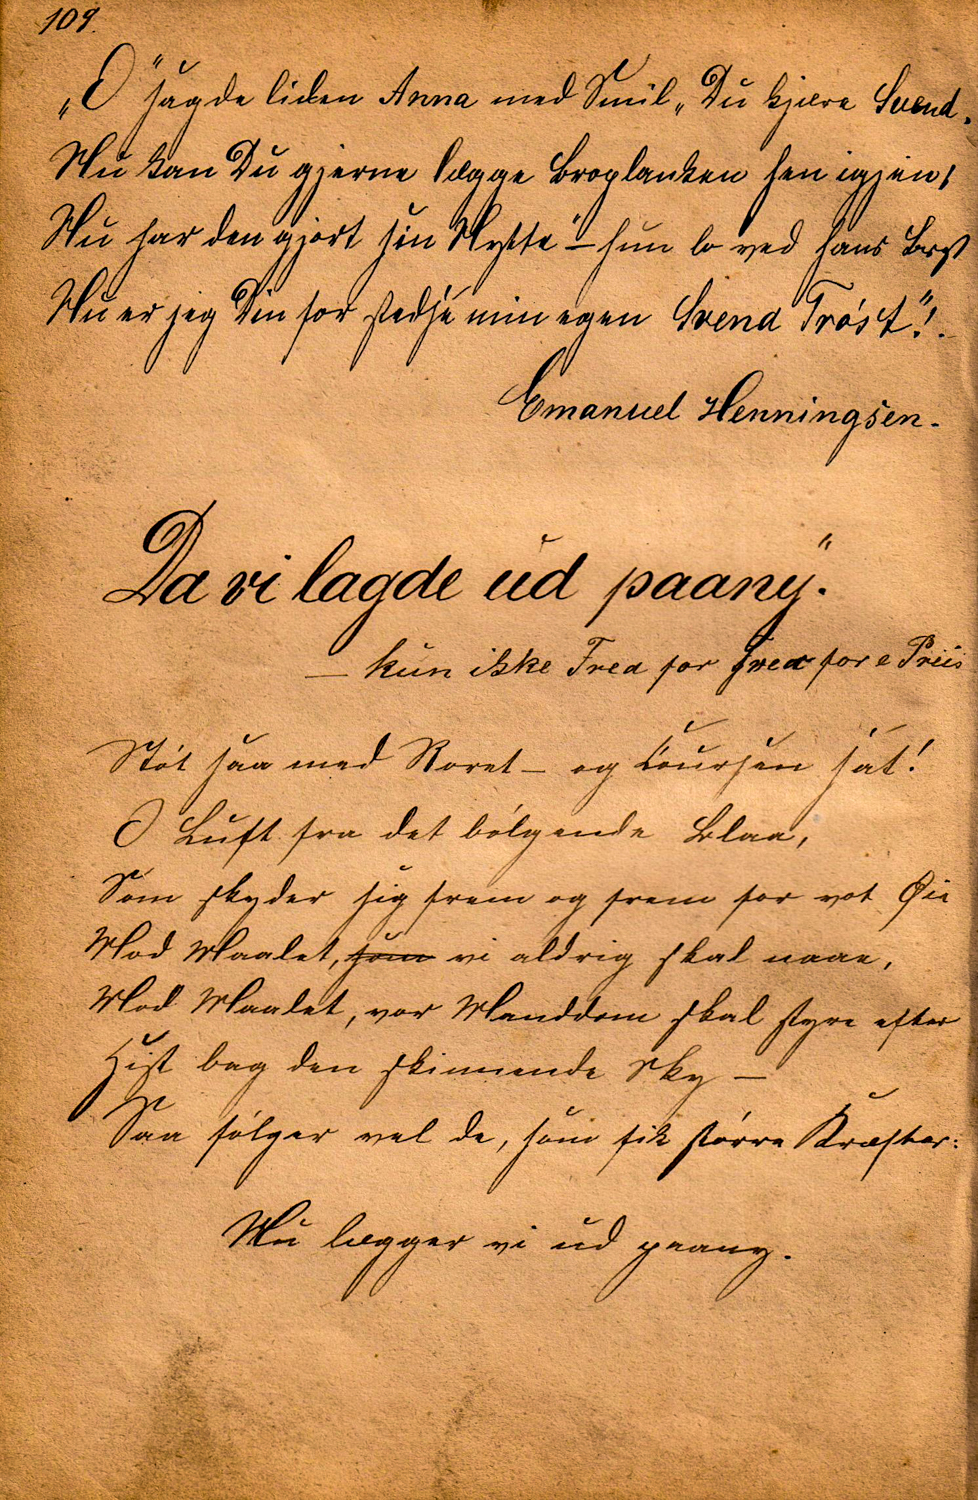 109.
„O" sagde liden Anna med Smil „Du kjære Svend,
Nu kan Du gjerne lægge Broplanken hen igjen;
Nu har den gjort sin Nytte" – hun lo ved hans Bryst
Nu er jeg Din for stedse min egen Svend Trøst"!.
Emanuel Henningsen.
Da vi lagde ud paany".
— kun ikke Fred for Fred for e Priis
Støt saa med Roret – og Coursen sat!
O Luft fra det bølgende Blaa,
Som skyder sig frem og frem for vot Øie
Mod Maalet, som vi aldrig skal naae,
Mod Maalet, vor Manddom skal styre efter
Hist bag den skinnende Sky –
Saa følger vel de, som fik større Kræfter:
Nu lægger vi ud paany.